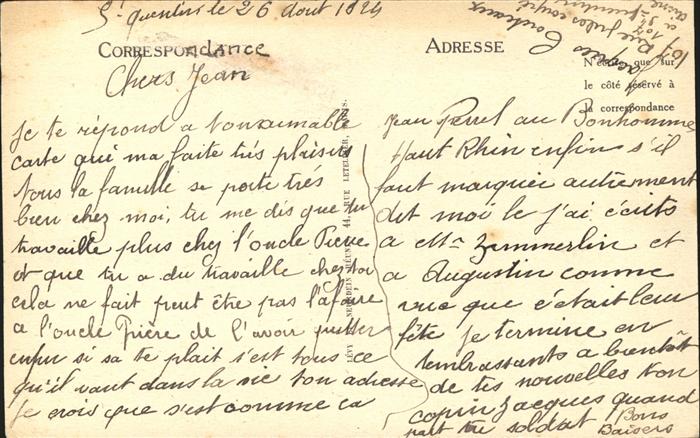 St quentin le 26 Aout 1924
CORRESPONDANCE
Chers Jean
Je te répond a ton aimable
carte qui ma faite très plaisir
tous la famille se porte très
bien chez moi, tu me dis que tu
travaille plus chez l'oncle Pierre
et que tu a du travaille chez toi
cela ne fait peut être pas l'afaire
a l'oncle Pière de l'avoir quitter
enfin si sa te plait s'est tous ce
qu'il vaut dans la vie ton adresse
je crois que s'est comme ca
LÉVY ET NEURDEIN RÉUNIS, 44, RUE LETELLIER, PARIS.
ADRESSE
N'écrire que sur
le côté réservé à
la correspondance
Jean Perrel au Bonhomme
Haut Rhin enfin s'il
faut marquer autrement
dit moi le j'ai écrits
a Mr Zimmerlin et
a Augustin comme
vue que c'était leur
fête je termine en
tembrassants a bientôt
de tes nouvelles ton
copin Jacques quand
part tu soldat Bons
Baisers
107 Rue jules